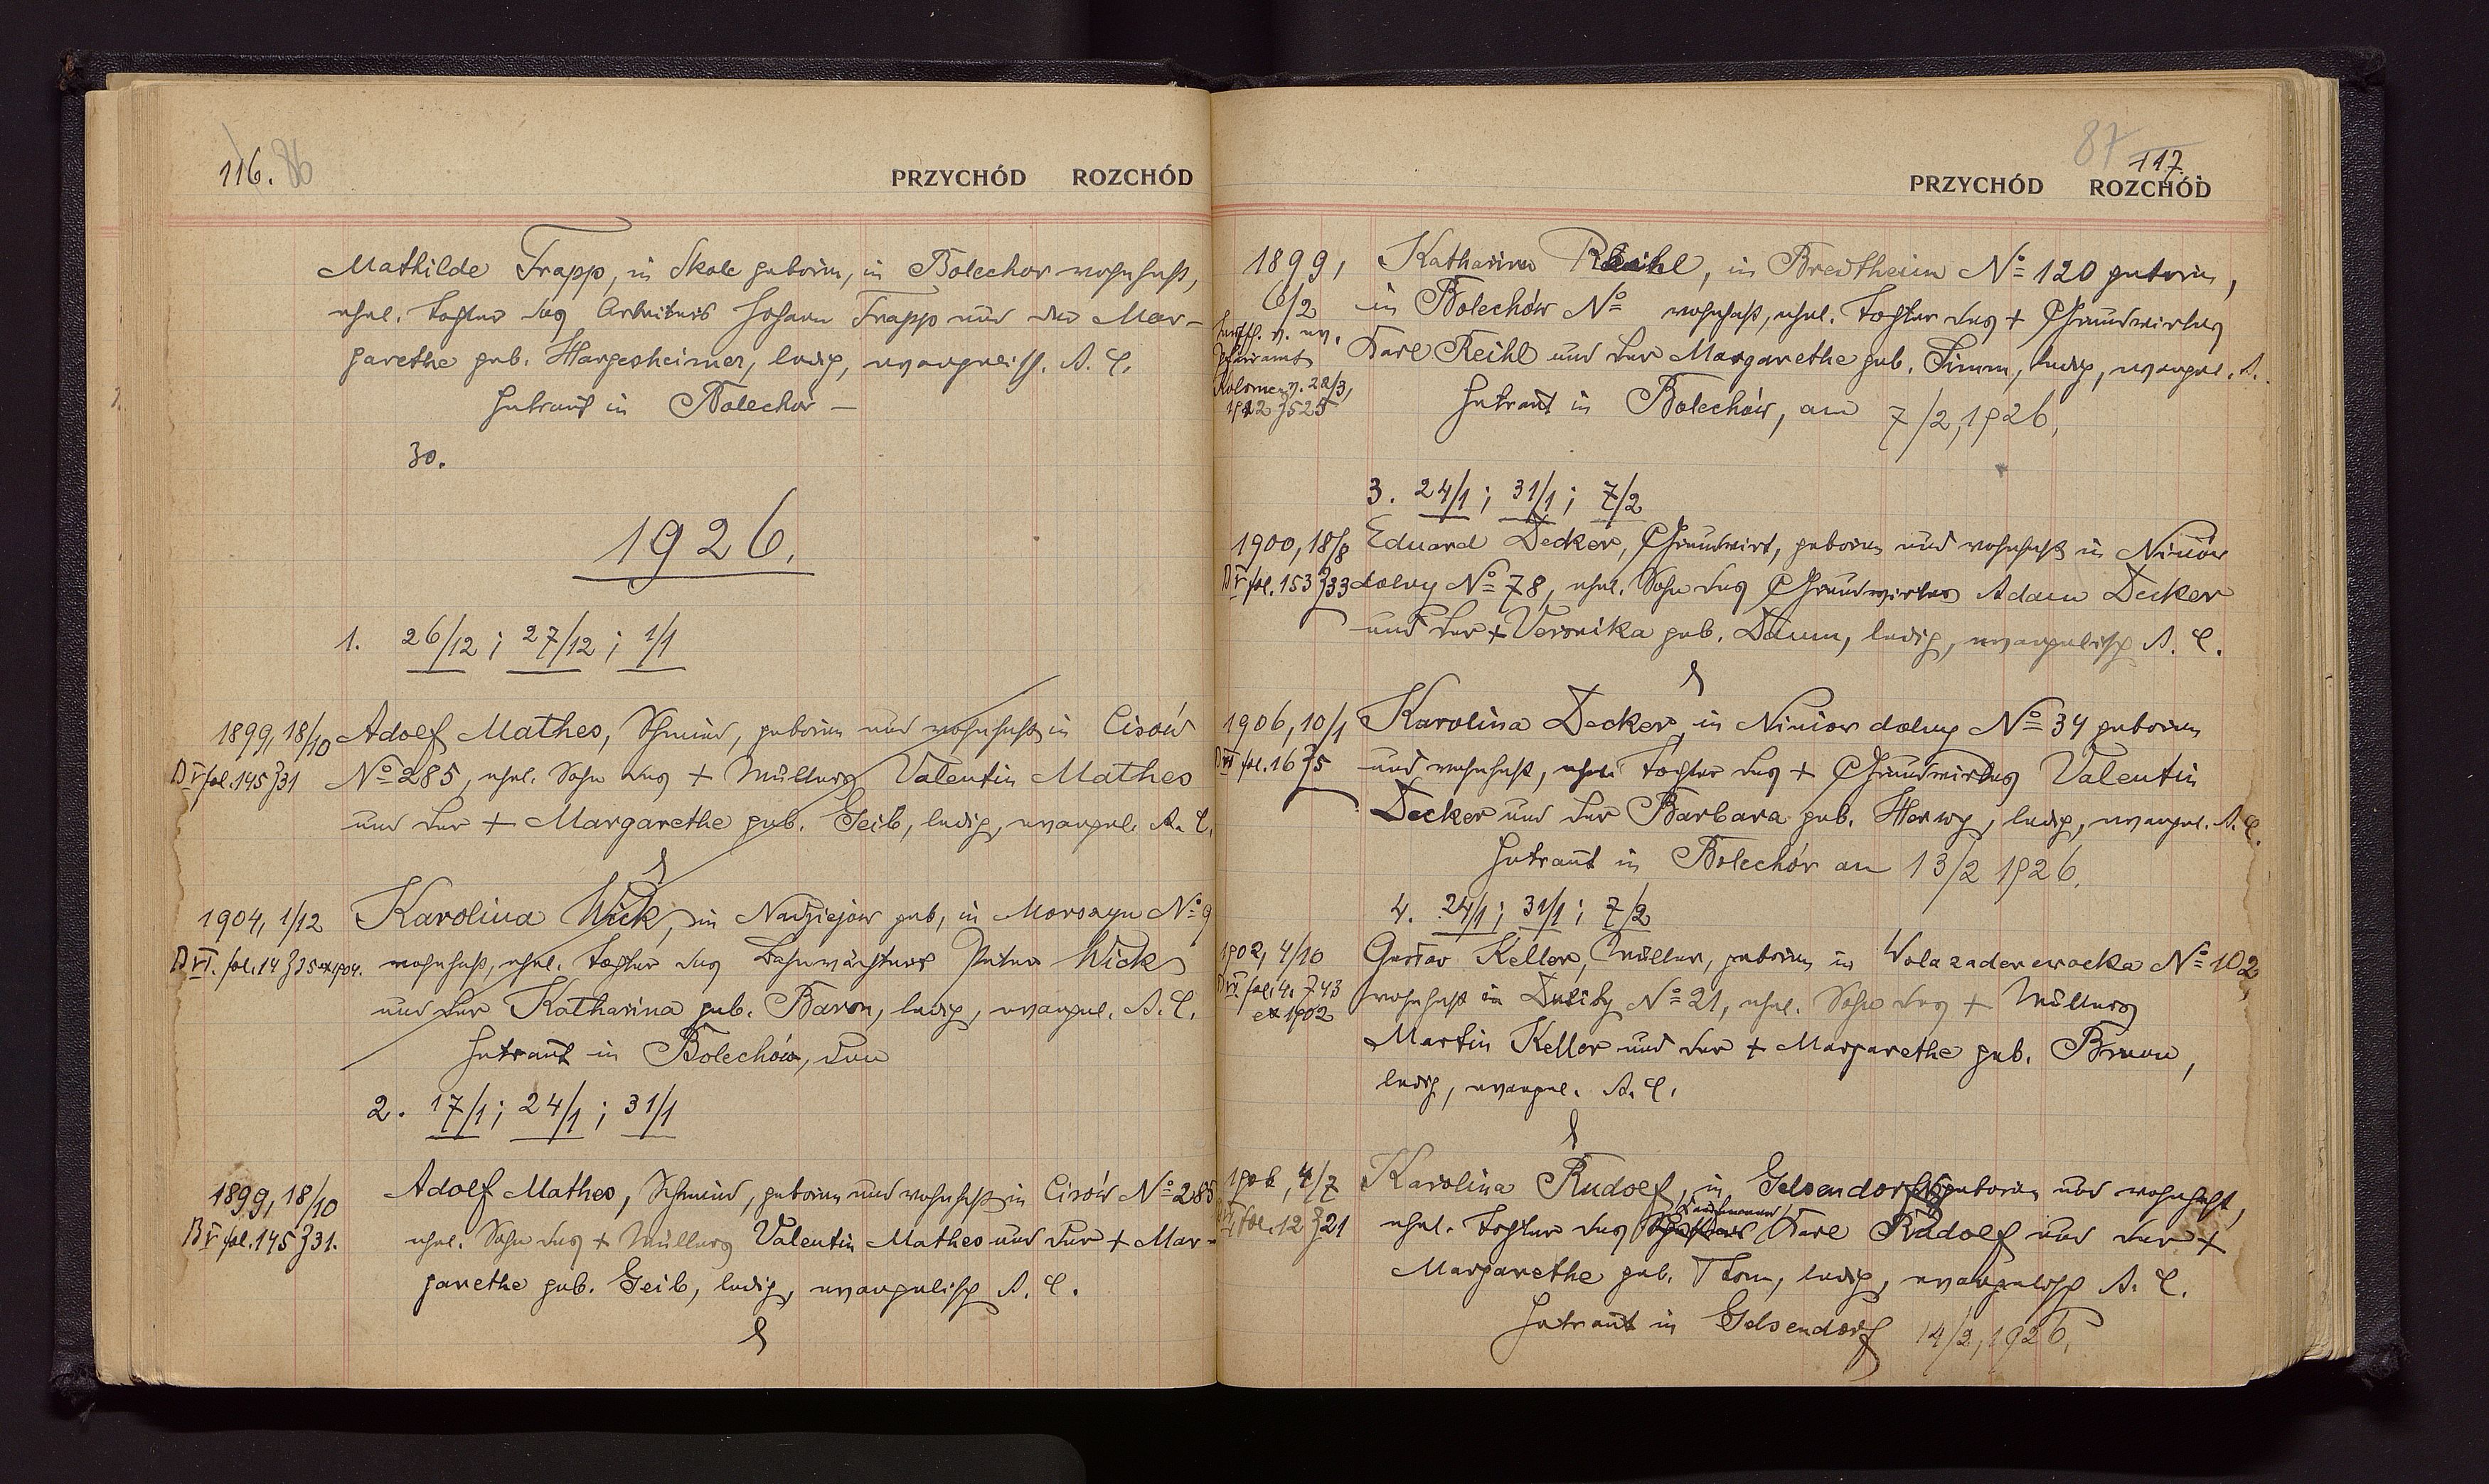 116. 86
PRZYCHÓD ROZCHÓD
Mathilde Trapp, in Skole geboren, in Bolechow wohnhaft,
ehel. Tochter des Arbeiters Johann Trapp und der Mar-
garethe geb. Hargesheimer, ledig, evangelisch. A. C.
Getraut in Bolechow —
30.
1926.
1. 26/12; 27/12; 1/1
1899, 18/10 Adolf Mathes, Schmied, geboren und wohnhaft in Cisów
fol. 145 31 No 285, ehel. Sohn des + Müllers Valentin Mathes
und der + Margarethe geb. Geib, ledig, evangel. A. C.
&
1904, 1/12 Karolina Wick, in Nadziejow geb, in Morszyn No 9
VI. fol. 14 35 ex 1904. wohnhaft, ehel. Tochter des Bahnwächters Peter Wick
und der Katharina geb. Baron, ledig, evangel. A. C.
Getraut in Bolechów, den
2. 17/1; 24/1; 31/1
1899, 18/10 Adolf Mathes, Schmied, geboren und wohnhaft in Cisów No 285
fol. 145 31. ehel. Sohn des + Müllers Valentin Mathes und der + Mar-
garethe geb. Geib, ledig, evangelisch A. C.
&
87 117.
PRZYCHÓD ROZCHÓD
1899, Katharina Reihl, in Bredtheim No 120 geboren,
6/2 in Bolechów No wohnhaft, ehel. Tochter des + Grundwirtes
v. ev. Pfarramt Karl Reihl und der Margarethe geb. Simm, ledig, evangel. A.
Kolomea v. 22/3, Getraut in Bolechów, am 7/2, 1926,
525
3. 24/1; 31/1; 7/2
1900, 18/8 Eduard Decker, Grundwirt, geboren und wohnhaft in Niniów
fol. 153 33 dolny No 78, ehel. Sohn des Grundwirtes Adam Decker
und der + Veronika geb. Daum, ledig, evangelisch A. C.
&
1906, 10/1 Karolina Decker, in Niniow dolny No 34 geboren
fol. 16 5 und wohnhaft, ehel. Tochter des + Grundwirtes Valentin
Decker und der Barbara geb. Herwy, ledig, evangel. A. C.
Getraut in Bolechów am 13/2 1926.
4. 24/1; 31/1; 7/2
1902, 4/10 Gustav Keller, Müller, geboren in Wola zaderewacka No 102
VI. fol. 4. 43 wohnhaft in No 21, ehel. Sohn des + Müllers
ex 1902 Martin Keller und der + Margarethe geb.
ledig, evangel. A. C.
&
4/7 Karolina Rudolf, in Gelsendorf geboren und wohnhaft,
fol. 12 21 ehel. Tochter des Karl Rudolf und der +
Margarethe geb. Thom, ledig, evangelisch A. C.
Getraut in Gelsendorf 14/2, 1926.